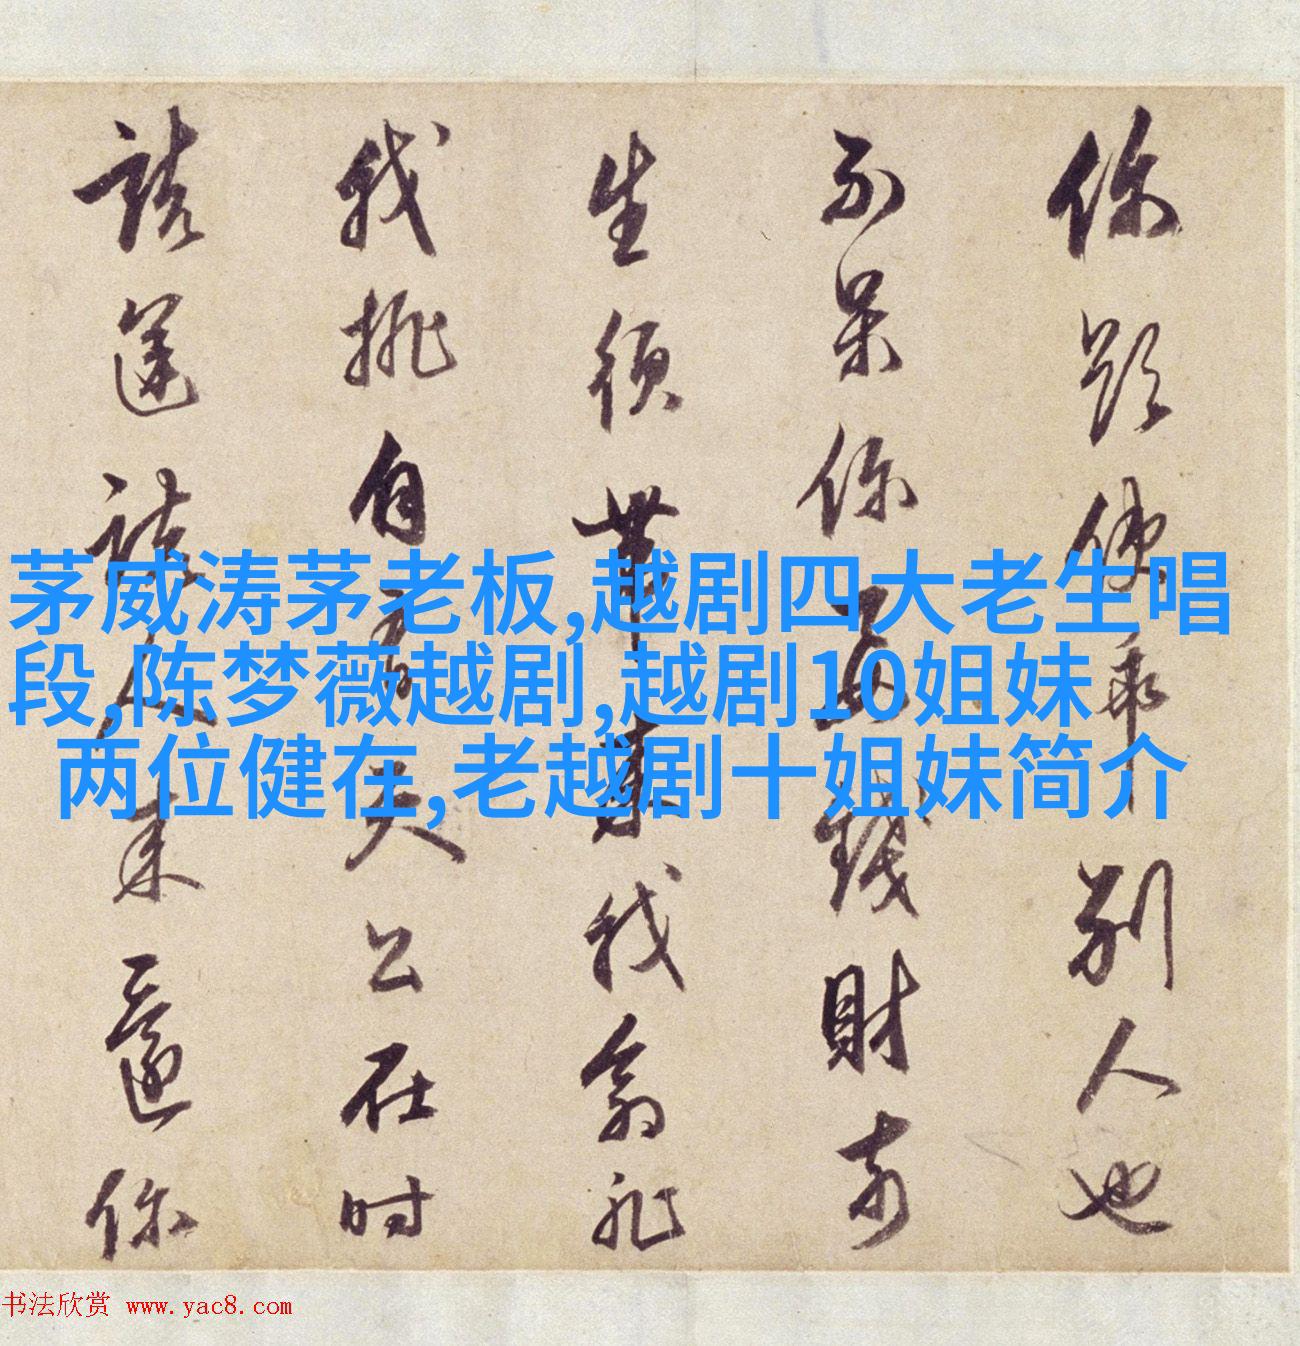 你使乖别人也
不呆你钱财前
生须带来我命非
我排自有天公在时
该运该人来还你
茅威涛茅老板,越剧四大老生唱
段,陈梦薇越剧,越剧10姐妹
两位健在,老越剧十姐妹简介
书法欣赏 www.yac8.com